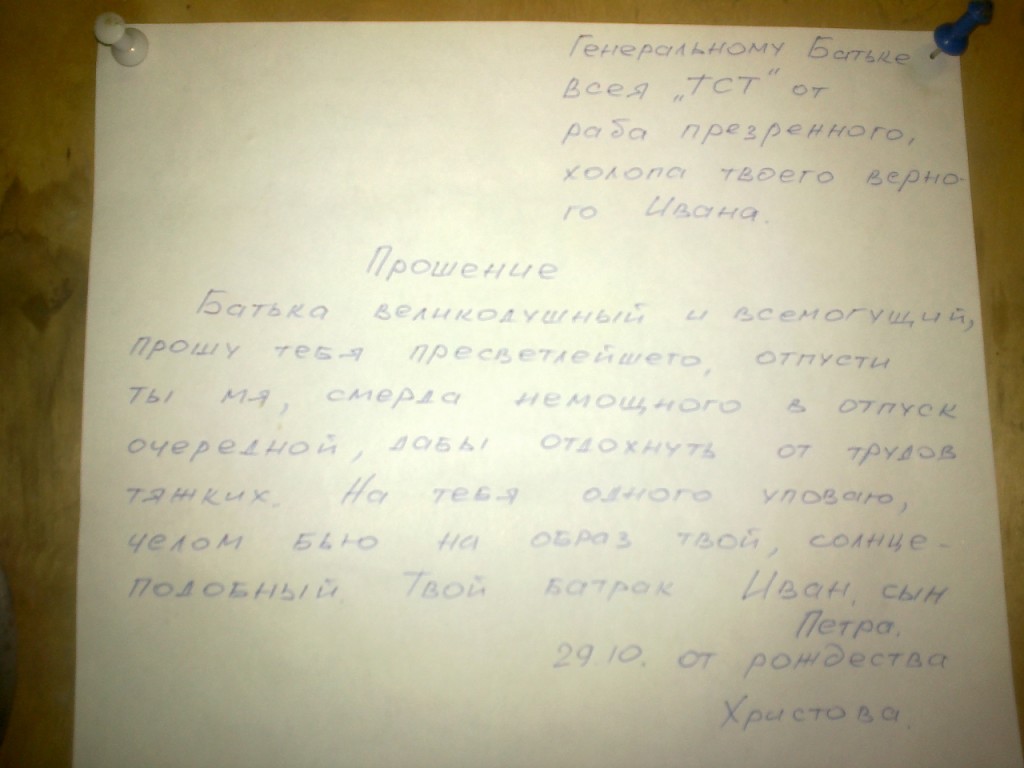 Генеральному Батьке
всея „ТСТ" от
раба презренного,
холопа твоего верно-
го Ивана.
Прошение
Батька великодушный и всемогущий,
прошу тебя пресветлейшего, отпусти
ты мя, смерда немощного в отпуск
очередной, дабы отдохнуть от трудов
тяжких. На тебя одного уповаю,
челом бью на образ твой, солнце-
подобный. Твой батрак Иван, сын
Петра.
29.10. от рождества
Христова.